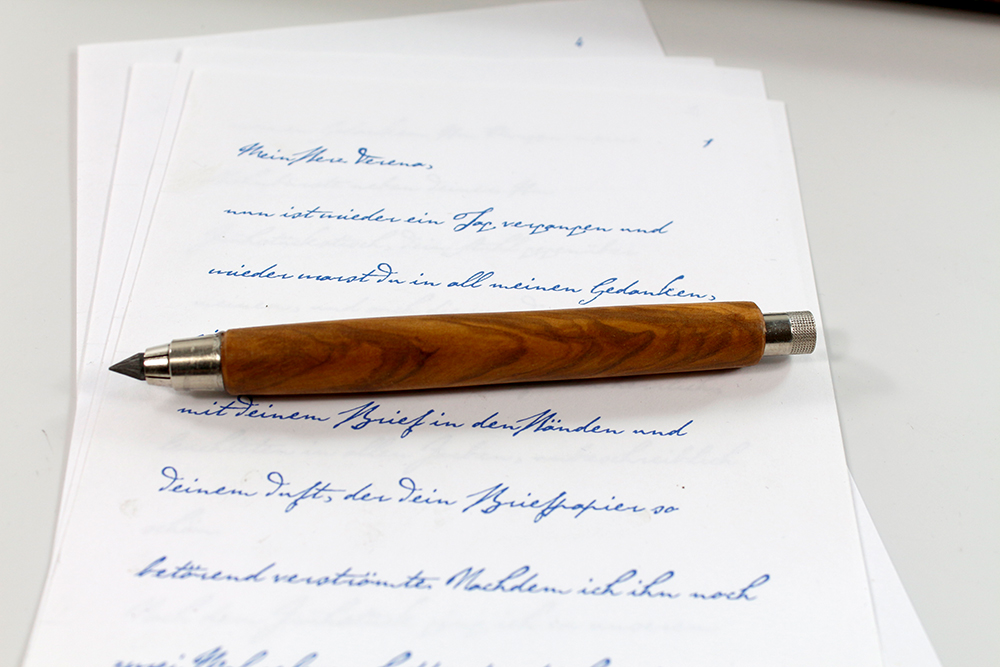 4
1
Mein Herz Verena,
nun ist wieder ein Tag vergangen und
wieder warst du in all meinen Gedanken,
mit deinem Brief in den Händen und
deinem Duft, der dein Briefpapier so
betörend verströmte. Nachdem ich ihn noch